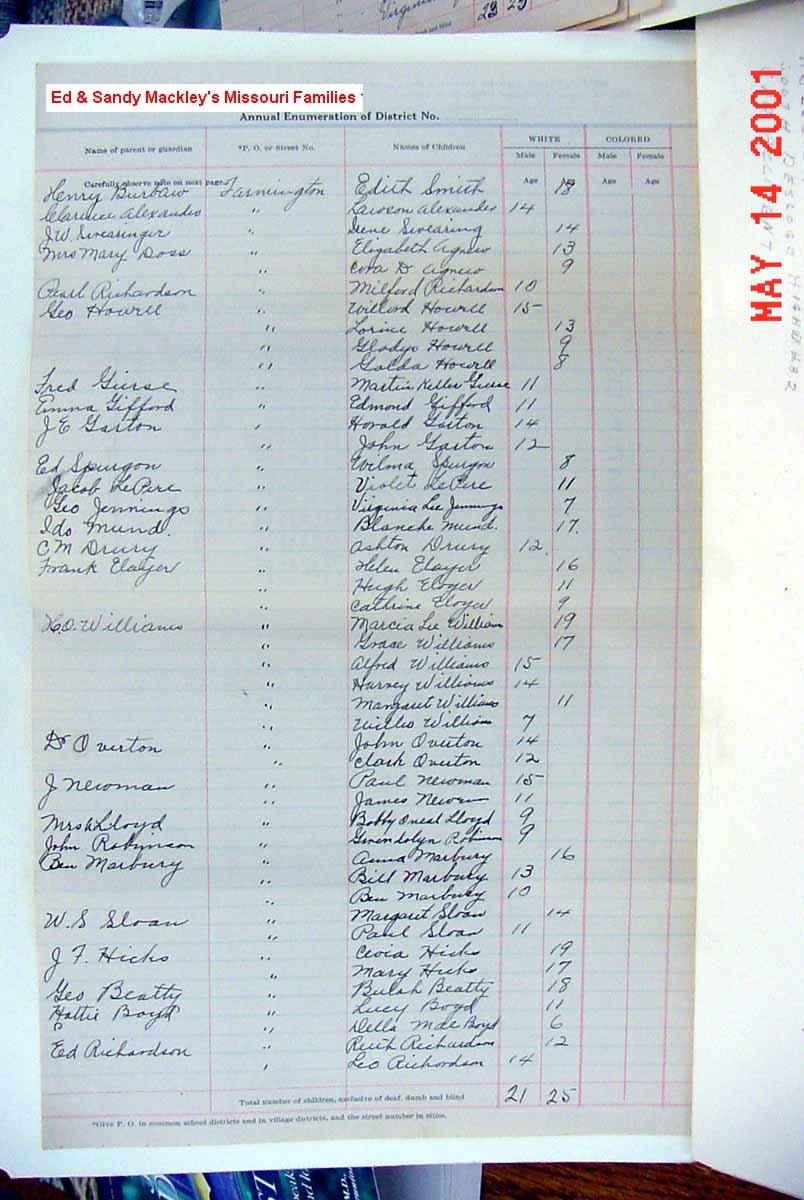 Virginia
23 25
Ed & Sandy Mackley's Missouri Families
MAY 14 2001
Annual Enumeration of District No.
Name of parent or guardian *P. O. or Street No. Names of Children WHITE COLORED
Male Female Male Female
Carefully observe note on next page. Age Age Age Age
Henry Burbaw Farmington Edith Smith 18
Clarence Alexander " Lawson Alexander 14
J.W. Swearinger " Irene Swearing 14
Mrs Mary Doss " Elizabeth Agnew 13
" Cora D Agnew 9
Pearl Richardson " Milford Richardson 10
Geo Howell " Willard Howell 15
" Lorine Howell 13
" Gladys Howell 9
" Golda Howell 8
Fred Giese " Martin Keller Giese 11
Emma Gifford " Edmond Gifford 11
J E Garton " Harold Garton 14
" John Garton 12
Ed Spurgon " Wilma Spurgon 8
Jacob LePere " Violet LePere 11
Geo Jennings " Virginia Lee Jennings 7
Ido Mund. " Blanche Mund. 17.
C M Drury " Ashton Drury 12
Frank Elayer " Helen Elayer 16
" Hugh Eloyer 11
" Cathrine Eloyer 9
H.O. Williams " Marcia Lee William 19
" Grace Williams 17
" Alfred Williams 15
" Harvey Williams 14
" Margaret Williams 11
" Willis Williams 7
Dr Overton " John Overton 14
" Clark Overton 12
J Newman " Paul Newman 15
" James Newman 11
Mrs Lloyd " Bobby Oneal Lloyd 9
John Robynson " Gwendolyn Robinson 9
Ben Marbury " Anna Marbury 16
" Bill Marbury 13
" Ben Marbury 10
W. S Sloan " Margaret Sloan 14
" Paul Sloan 11
J. F. Hicks " Hicks 19
" Mary Hicks 17
Geo Beatty " Bulah Beatty 18
Hattie Boyd " Lucy Boyd 11
" Della Mae Boyd 6
Ed Richardson " Ruth Richardson 12
" Leo Richardson 14
Total number of children, exclusive of deaf, dumb and blind 21 25
*Give P. O. in common school districts and in village districts, and the street number in cities.